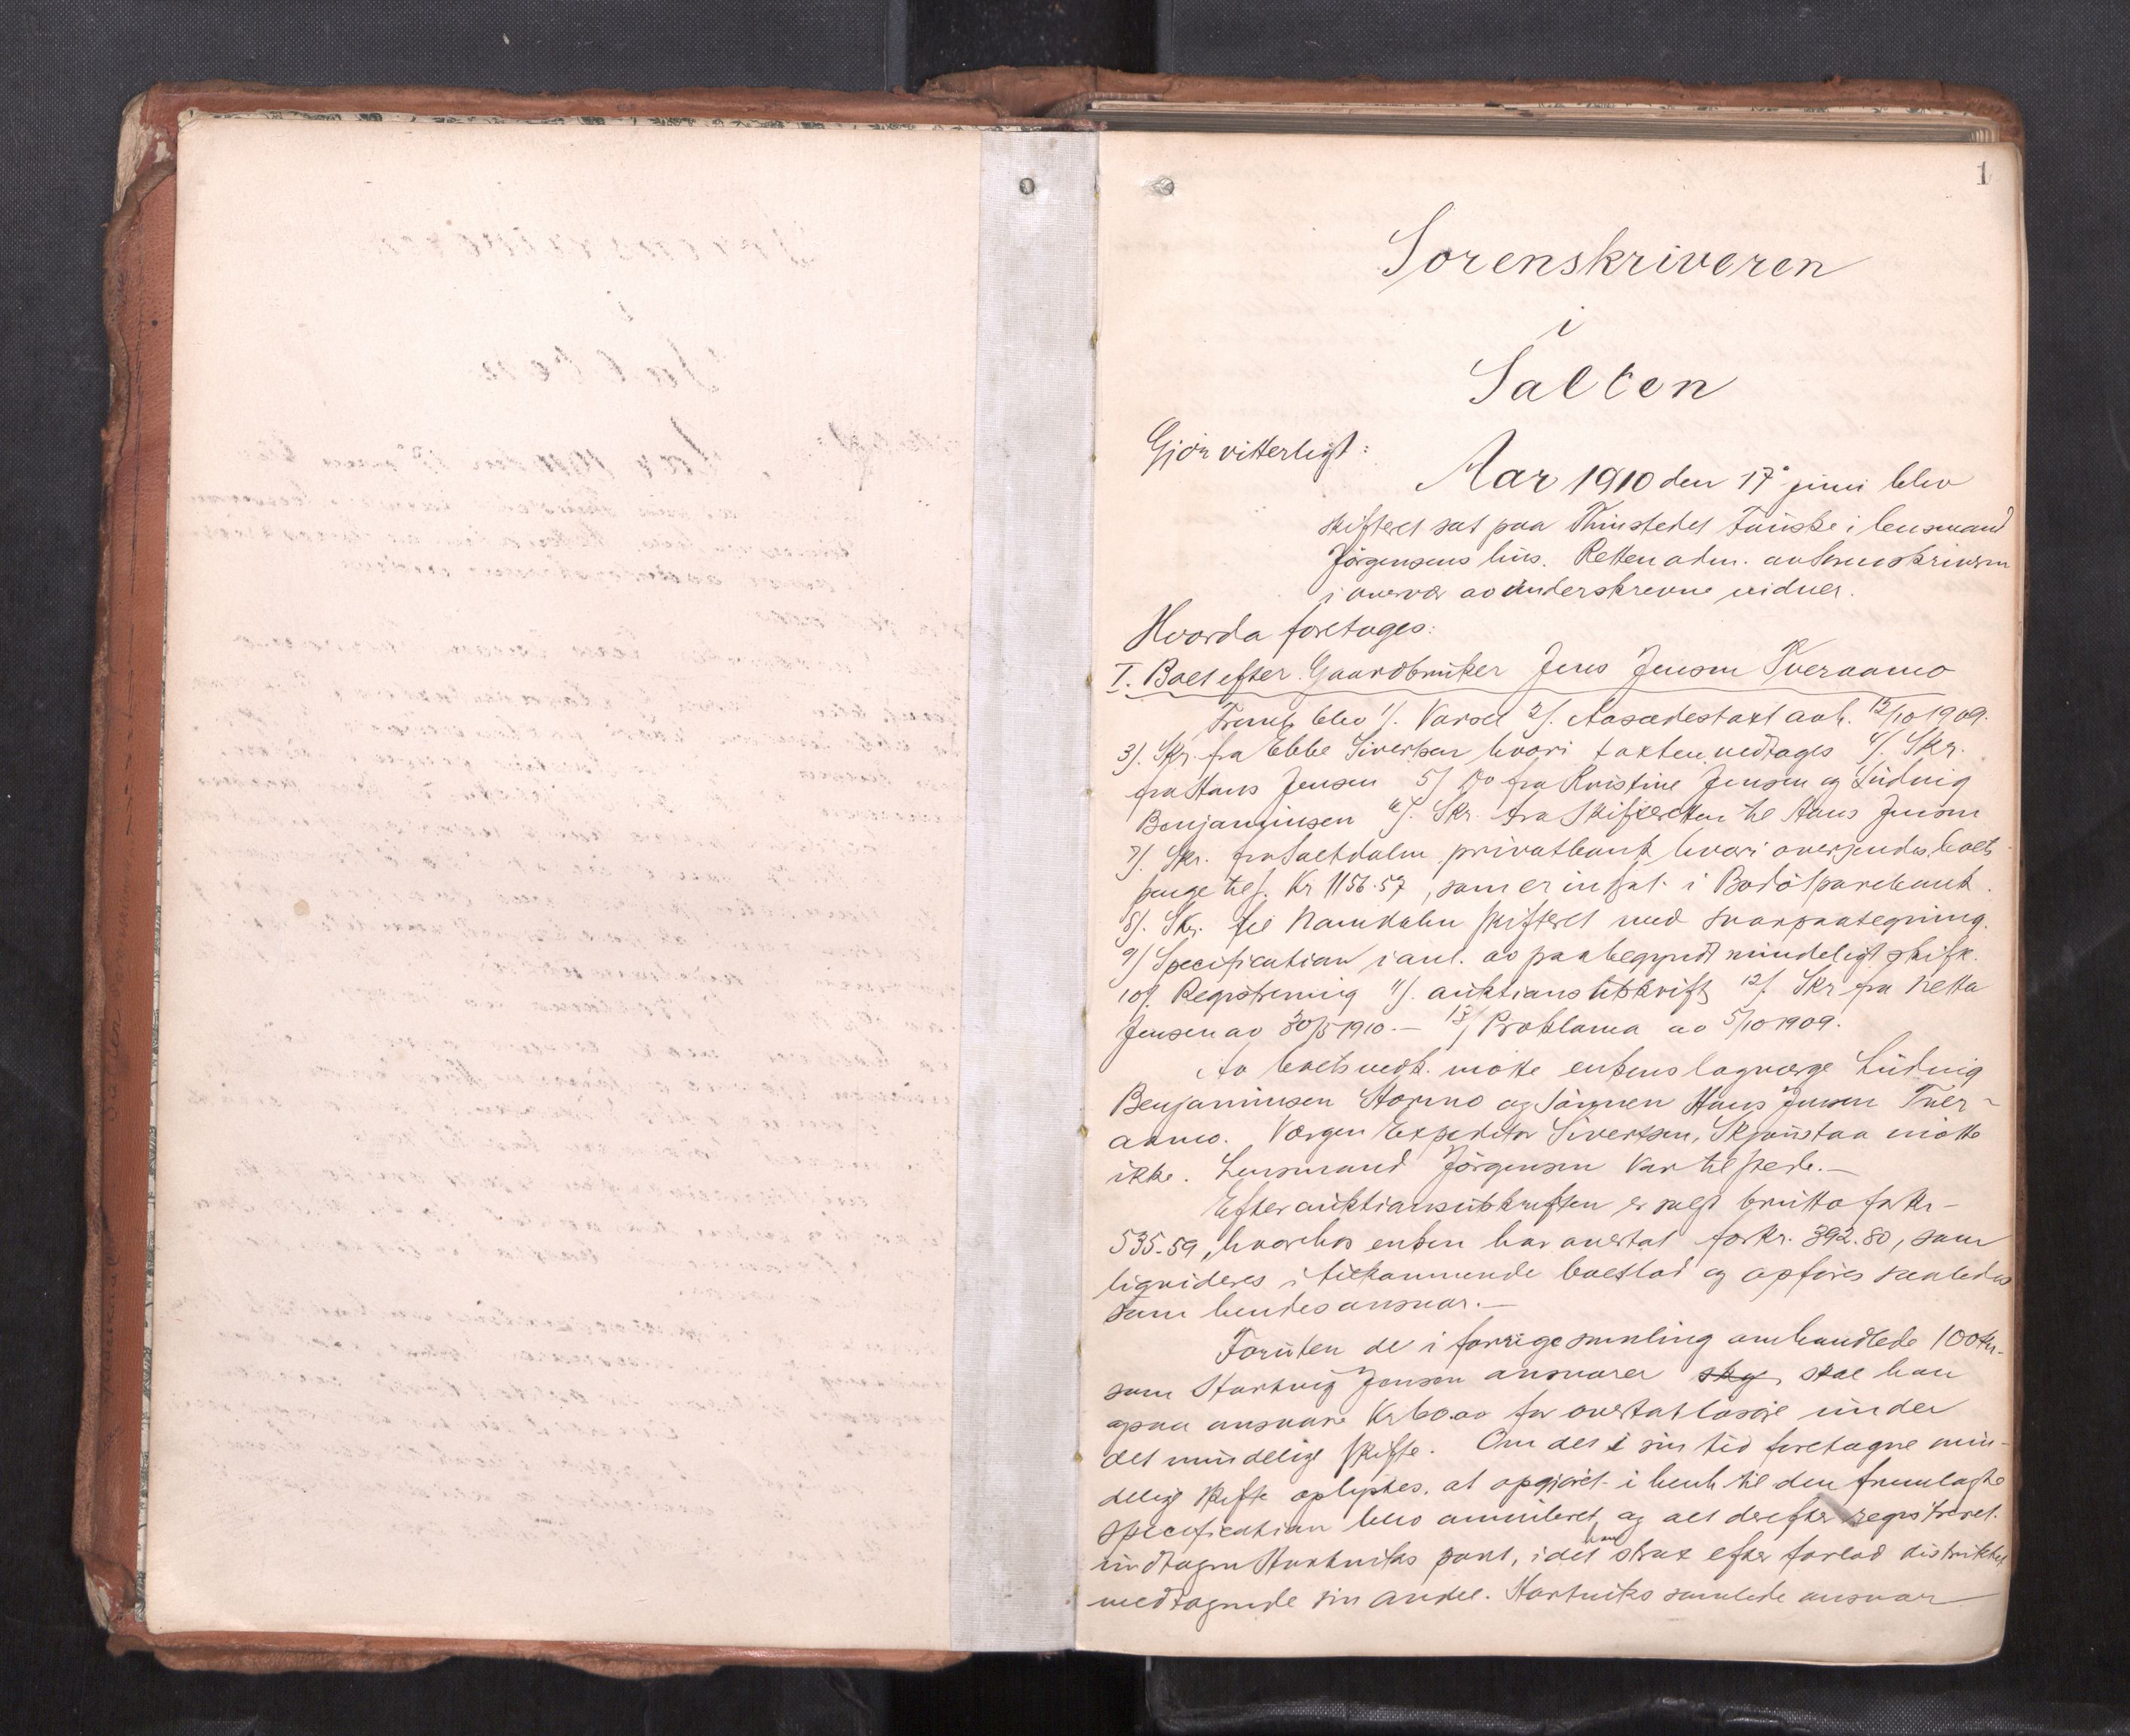 1
Sorenskriveren
i
Salten
Gjör vitterligt:
Aar 1910 den 17 juni blev
skifteret sat paa Thinstedet Fauske i lensmand
Jörgensens hus. Retten adm. av Sorenskriveren
i overvær av underskrevne vidner.
Hvorda foretoges:
I. Boet efter Gaardbruker Jens Jensen Tveraamo
Freml. blev 1/. Varsel 2/. Aasædestaxt avh. 12/10 1909.
3/. Skr. fra Ebbe Sivertsen hvori taxten vedtages 4/. Skr.
fra Hans Jensen 5/ Do fra Kristine Jensen og Ludvig
Benjaminsen 6/. Skr. fra Skifteretten til Hans Jensen
7/. Skr. fra Saltdalen privatbank hvori oversendes boets
penge tils. Kr 1156.57, som er indsat i Bodö Sparebank.
8/. Skr. til Namdalen skifteret med svarpaategning.
9/ Specification i anl. av paabegyndt mindeligt skifte.
10/. Registrering 11/. auktionsutskrift 12/. Skr fra Netta
Jensen av 30/5 1910.— 13/ Proklama av 5/10 1909.
Av boets vedk. mötte enkens lagværge Ludvig
Benjaminsen Stormo og sönnen Hans Jensen Tver-
aamo. Værgen Expeditör Sivertsen, Skjønstaa mötte
ikke. Lensmand Jörgensen var tilstede.—
Efter auktionsutskriften er solgt brutto for Kr-
535.59, hvorhos enken har overtat for Kr. 392.80, som
liqvideres i tilkommende boeslod og opföres saaledes
som hendes ansvar.—
Foruten de i forrige samling omhandlede 100 Kr.
som Hartvig Jensen ansvarer skal han
ogsaa ansvare Kr 60.00 for overtat lösöre under
det mindelige skifte. Om det i sin tid foretagne min-
delige skifte oplystes, at opgjöret i henh. til den fremlagte
specification blev annuleret og alt derefter registreret.
undtagen Hartviks part, idet han strax efter forlod distriktet
medtagende sin andel. Hartviks samlede ansvar